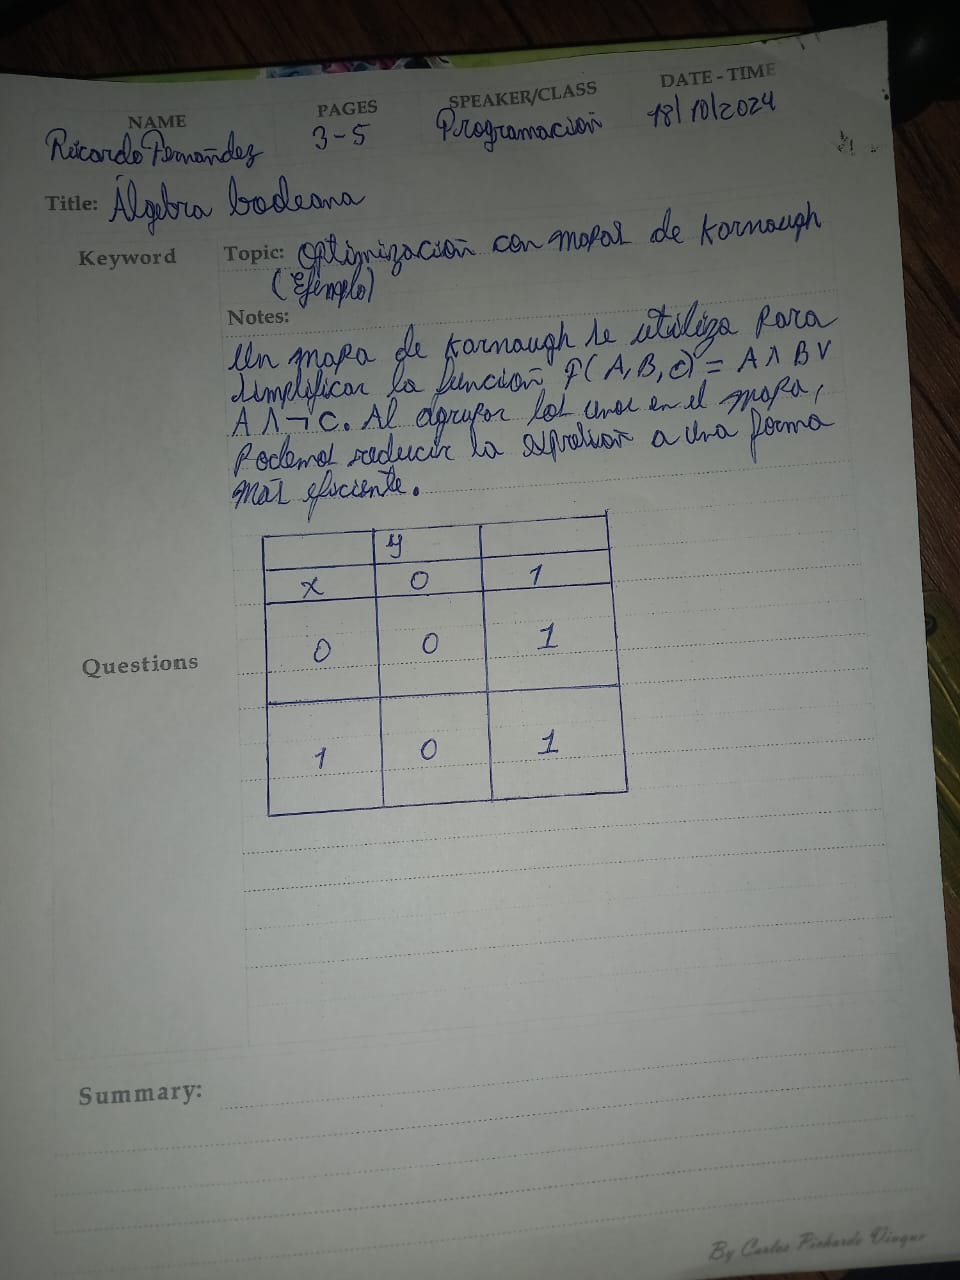 NAME PAGES SPEAKER/CLASS DATE - TIME
Ricardo Fernandez 3-5 Programación 18/10/2024
Title: Álgebra booleana
Keyword Topic: Optimización con mapas de Karnaugh
(Ejemplo)
Notes:
Un mapa de Karnaugh se utiliza para
simplificar la función F(A,B,C) = A ∧ B ∨
A ∧ ¬ C. Al agrupar los unos en el mapa,
Podemos reducir la expresión a una forma
más eficiente.
y
x 0 1
0 0 1
Questions
1 0 1
Summary:
By Carlos Pichardo Viuque